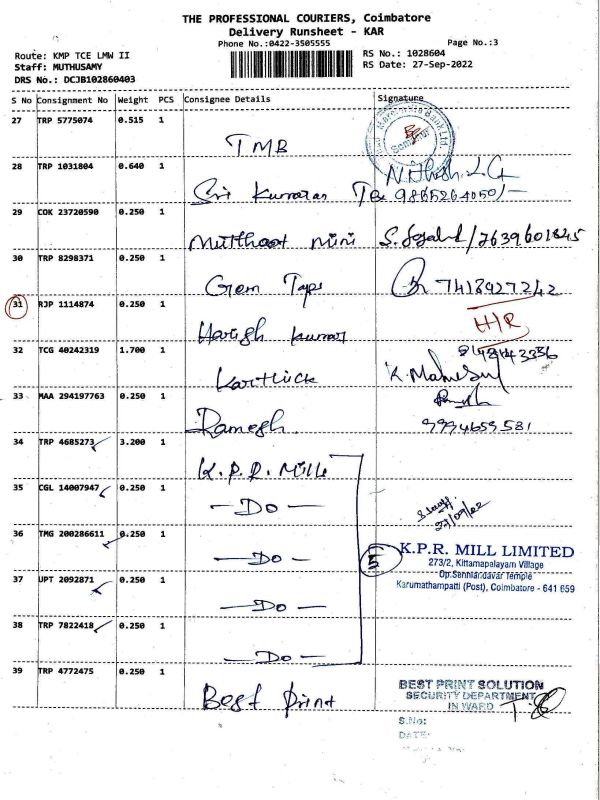 THE PROFESSIONAL COURIERS, Coimbatore
Delivery Runsheet - KAR
Phone No.:0422-3505555
Page No.:3
Route: KMP TCE LMW II
Staff: MUTHUSAMY
DRS No.: DCJB102860403
RS No.: 1028604
RS Date: 27-Sep-2022
S No Consignment No Weight PCS Consignee Details Signature
27 TRP 5775074 0.515 1 TMB
28 TRP 1031804 0.640 1 Sri Kumaran 9865264050/-
29 COK 23720590 0.250 1 Mutthoot mini 7639601845
30 TRP 8298371 0.250 1 Gem Taps 7418927242
31 RJP 1114874 0.250 1 Harish kumar H/R
32 TCG 40242319 1.700 1 Karthick
33 MAA 294197763 0.250 1 Ramesh 9994659581
34 TRP 4685273 3.200 1 K.P.R. Mills
35 CGL 14007947 0.250 1 — Do —
27/09/22
36 TMG 200286611 0.250 1 — Do —
5
K.P.R. MILL LIMITED
273/2, Kittamapalayam Village
Op.Sennlandavar Temple
Karumathampatti (Post), Coimbatore - 641 659
37 UPT 2092871 0.250 1 — Do —
38 TRP 7822418 0.250 1 — Do —
39 TRP 4772475 0.250 1 Best Print
BEST PRINT SOLUTION
SECURITY DEPARTMENT
IN WARD
S.No:
DATE: